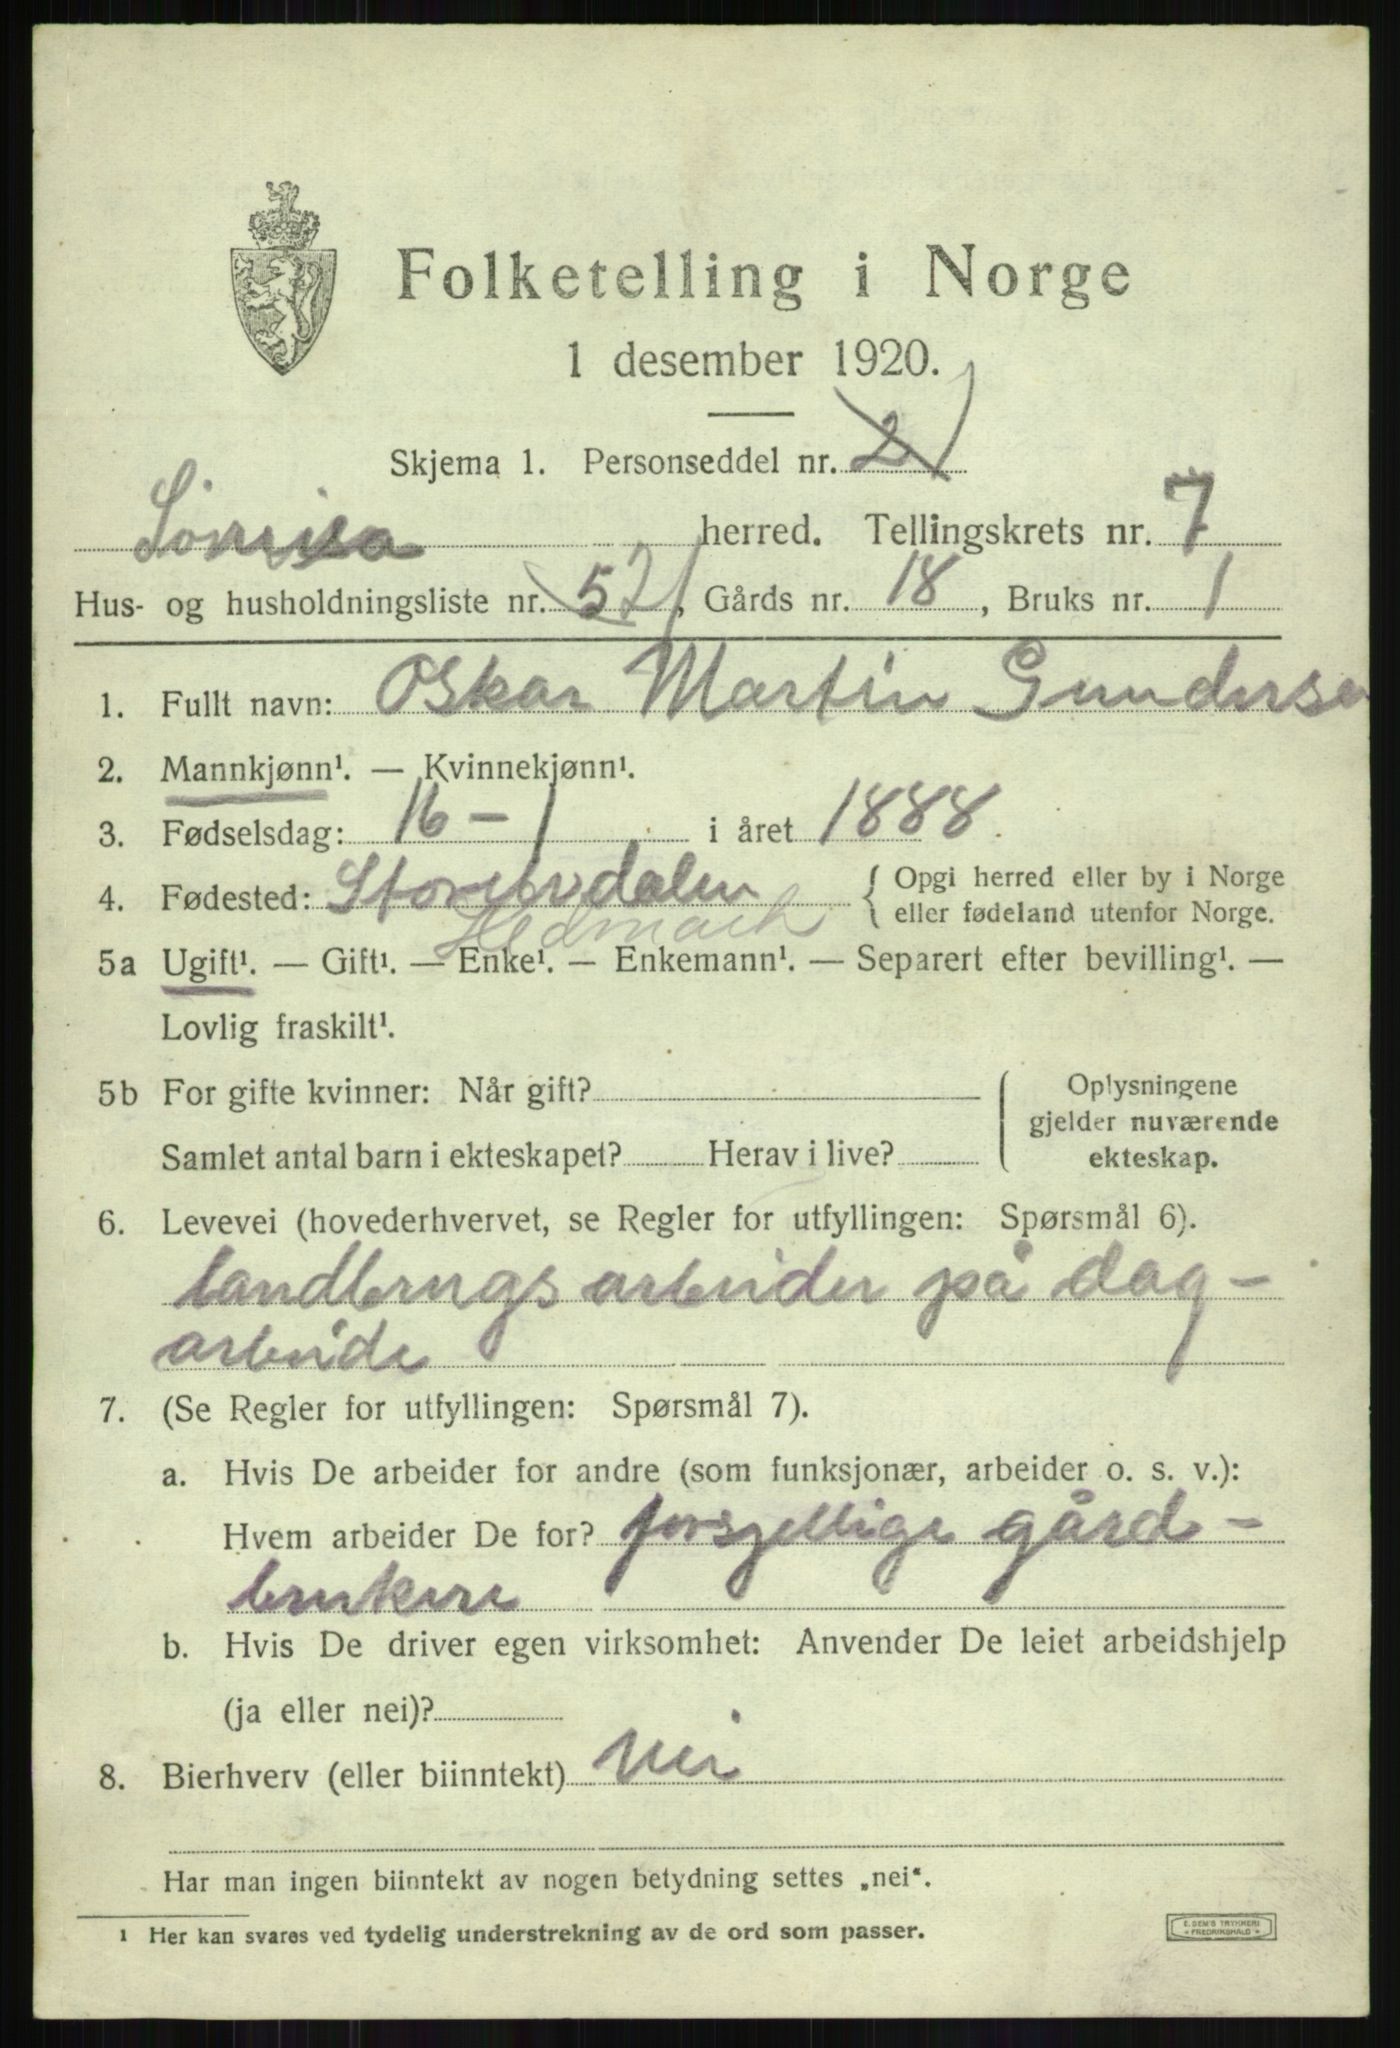 Folketelling i Norge
1 desember 1920.
Skjema 1. Personseddel nr. 2 1
herred. Tellingskrets nr. 7
Hus- og husholdningsliste nr. 52, Gårds nr. 18, Bruks nr. 1
1. Fullt navn: Oskar Martin Gundersen
2. Mannkjønn¹. — Kvinnekjønn¹.
3. Fødselsdag: 16 – 1 i året 1888.
4. Fødested: Storelvdalen { Opgi herred eller by i Norge
eller fødeland utenfor Norge.
Hedmark
5a Ugift¹. — Gift¹. — Enke¹. — Enkemann¹. — Separert efter bevilling¹. —
Lovlig fraskilt¹.
5b For gifte kvinner: Når gift? Oplysningene
gjelder nuværende
Samlet antal barn i ekteskapet? Herav i live? ekteskap.
6. Levevei (hovederhvervet, se Regler for utfyllingen: Spørsmål 6).
landbrugsarbeider på dag-
arbeide
7. (Se Regler for utfyllingen: Spørsmål 7).
a. Hvis De arbeider for andre (som funksjonær, arbeider o. s. v.):
Hvem arbeider De for? forsjellige gård-
brukere
b. Hvis De driver egen virksomhet: Anvender De leiet arbeidshjelp
(ja eller nei)?
8. Bierhverv (eller biinntekt) nei
Har man ingen biinntekt av nogen betydning settes „nei“.
¹ Her kan svares ved tydelig understrekning av de ord som passer.
E. SEM'S TRYKKERI
FREDRIKSHALD